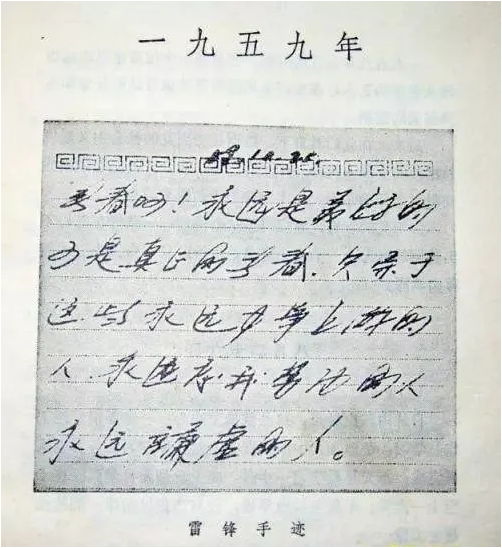 一九五九年
59.10.25.
青春啊！永远是美好的
可是真正的青春，只属于
这些永远力争上游的
人，永远忘我劳动的人
永远谦虚的人。
雷锋手迹